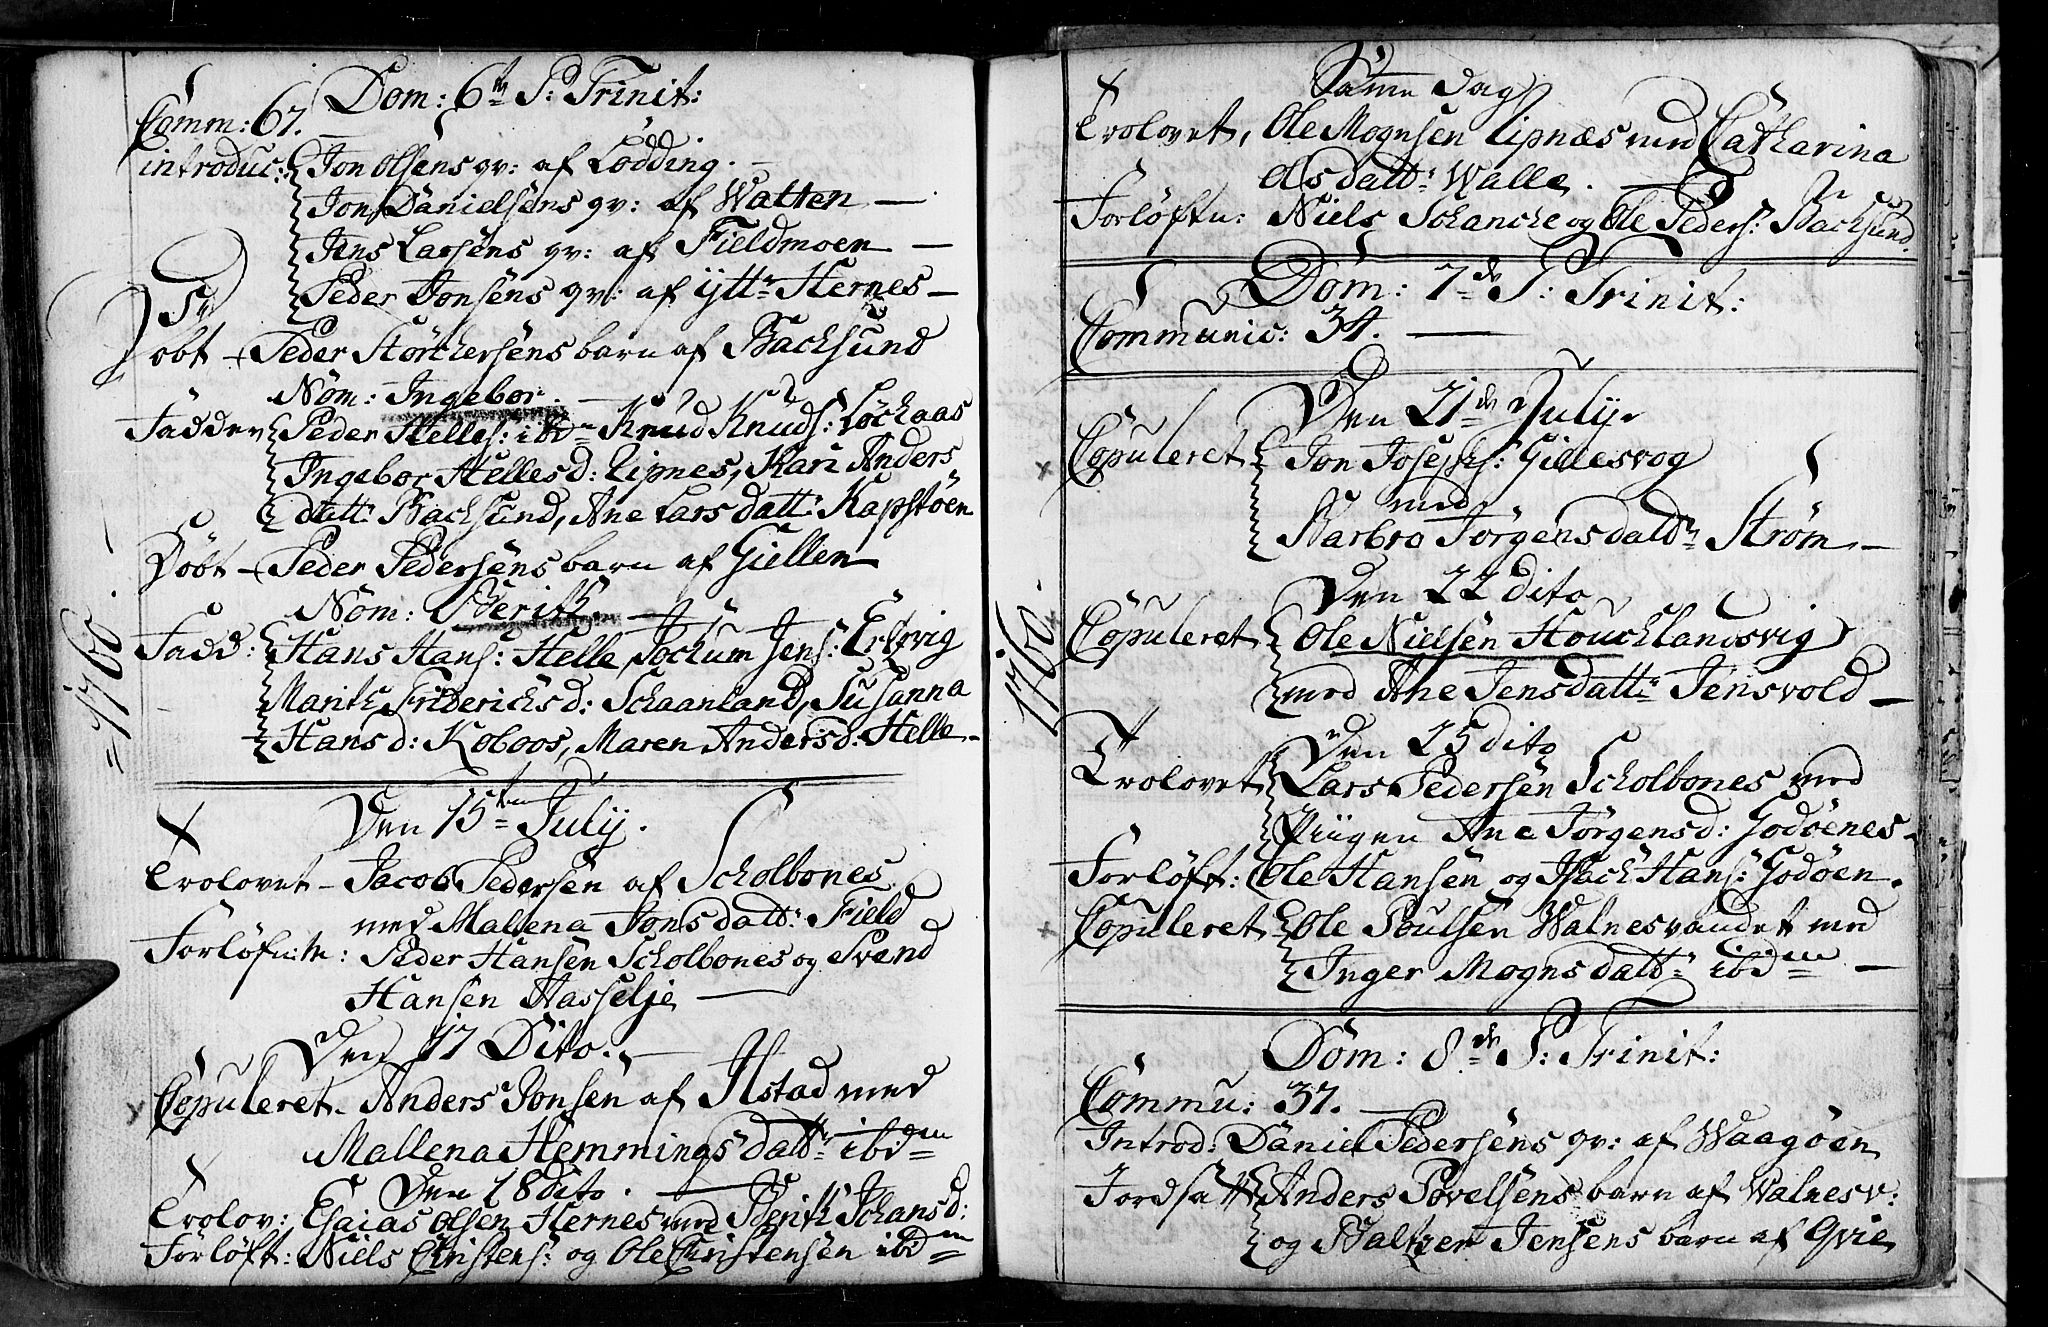 Dom: 6te P: Trinit:
Comm: 67.
introduc: Jon Olsens qv: af Lødding. —
Jon Danielsens qv: af Watten —
Jens Larsens qv: af Fieldmoen —
Peder Jonsens qv: af ytt. Hernes —
Døbt — Peder Störchersens barn af Backsund
Nom: Ingebor. —
Fadder Peder Hellesz: ibdm Knud Knuds: Løchaas
Ingebor Hellesd: Lipnes, Kari Anders
datt: Backsund, Ane Larsdatt: Kapstøen
Døbt — Peder Pedersens barn af Giellen
Nom: Berith. —
Fadd: Hans Hans: Helle, Jochum Jens: Erlsvig
Marith Friderichsd: Schaanland, Susanna
Hansd: Koboos, Maren Andersd: Helle —
1760.
Den 15ten July.
Trolovet — Jacob Pedersen af Scholbones
med Mallena Jonsdatt: Field
Forløfnm: Peder Hansen Scholbones og Svend
Hansen Hasselje —
Den 17 Dito. —
Copuleret — Anders Jonsen af Ilstad med
Mallena Hemmingsdatt: ibdm
Den 18 dito. —
Trolov: Esaias Olsen Hernes med Berith Johansd:
Forløft: Niels Christens: og Ole Christensen ibdm
Samme Dag
Trolovet, Ole Mognsen Lipnæs med Catharina
Olsdatt: Walle. —
Forløftn: Niels Schancke og Ole Peders: Backsund.
Dom: 7de P: Trinit:
Communic: 34. —
Den 21de July.
Copuleret Jon Josephs: Gillesvog
med
Barbro Jørgensdatt: Strøm —
Den 22 dito
Copuleret Ole Nielsen Houcklandsvig
med Ane Jensdatt: Jensvold —
1760.
Den 25 dito
Trolovet Lars Pedersen Scholbones med
Piigen Ane Jørgensd: Godøenes —
Forløft: Ole Hansen og Isach Hans: Godøen.
Copuleret Ole Poulsen Walnesvandet med
Inger Mognsdatt: ibdm —
Dom: 8de P: Trinit:
Commu: 37. —
Introd: Daniel Pedersens qv: af Waagøen
Jordsatt Anders Povelsens barn af Walnesv:
og Baltzer Jensens barn af Qvie